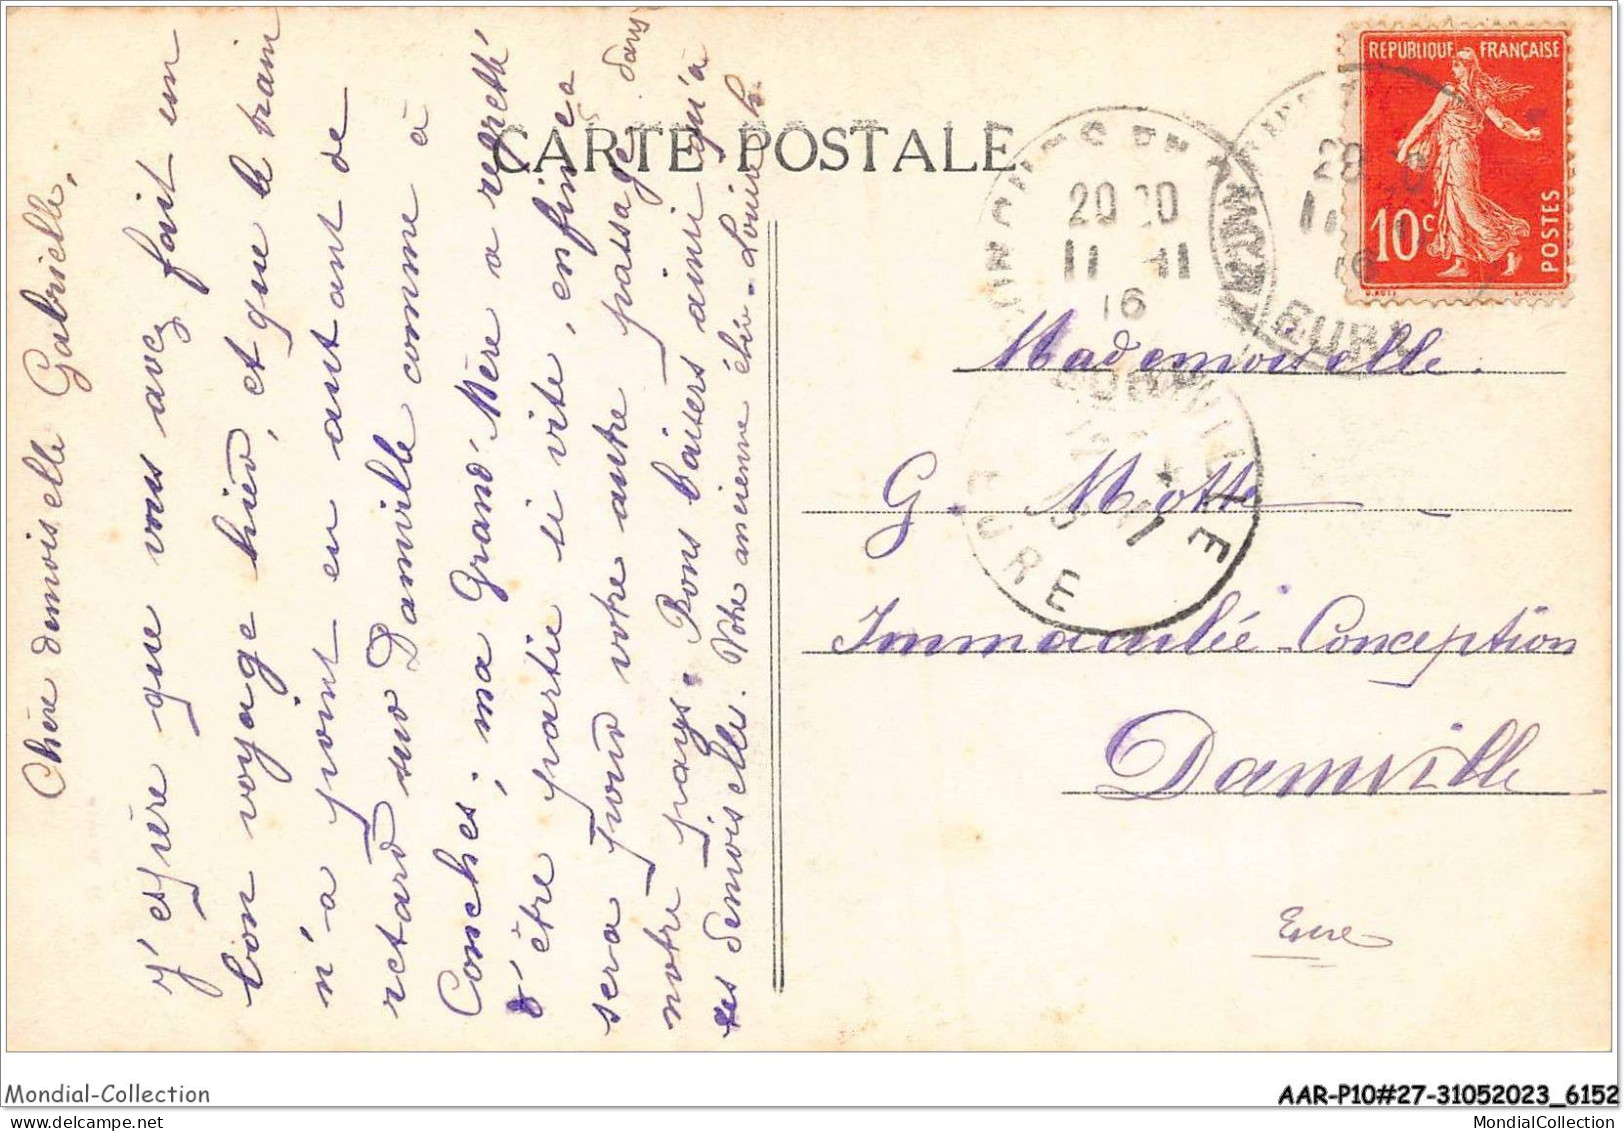 CARTE POSTALE
Chère demoiselle Gabrielle,
J'espère que vous avez fait un
bon voyage hier, et que le train
n'a point eu autant de
retard sur Damville comme à
Conches; ma Grand'Mère a regretté
d'être partie si vite, enfin ça
sera pour votre autre passage dans
notre pays. Bons baisers ainsi qu'à
ces demoiselle. Votre ancienne élève. Louise h.
REPUBLIQUE FRANÇAISE
10c
POSTES
20
11 - 11
16
EURE
20
11
16
EURE
EURE
Mademoiselle.
G. Motte
Immaculée-Conception
Damville
Eure
Mondial-Collection
AAR-P10#27-31052023_6152
MondialCollection